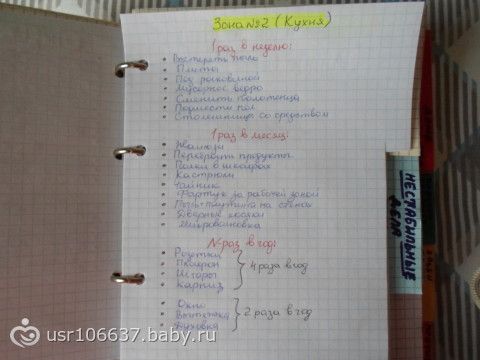 Зона №2 (Кухня)
1 раз в неделю:
Плиты
Под раковиной
Мусорное ведро
Сменить полотенца
Подмести пол
Столешницы со средством
1 раз в месяц:
Жалюзи
Перебрать продукты
Полки в шкафах
Кастрюли
Чайник
Фартук за рабочей зоной
на стенах
Дверные косяки
Микроволновка
N-раз в год:
Розетки
Плафон
Шторы
Карниз
4 раза в год
Окно
Вытяжка
Духовка
2 раза в год
НЕСТАБИЛЬНЫЕ
ДЕЛА
usr106637.baby.ru